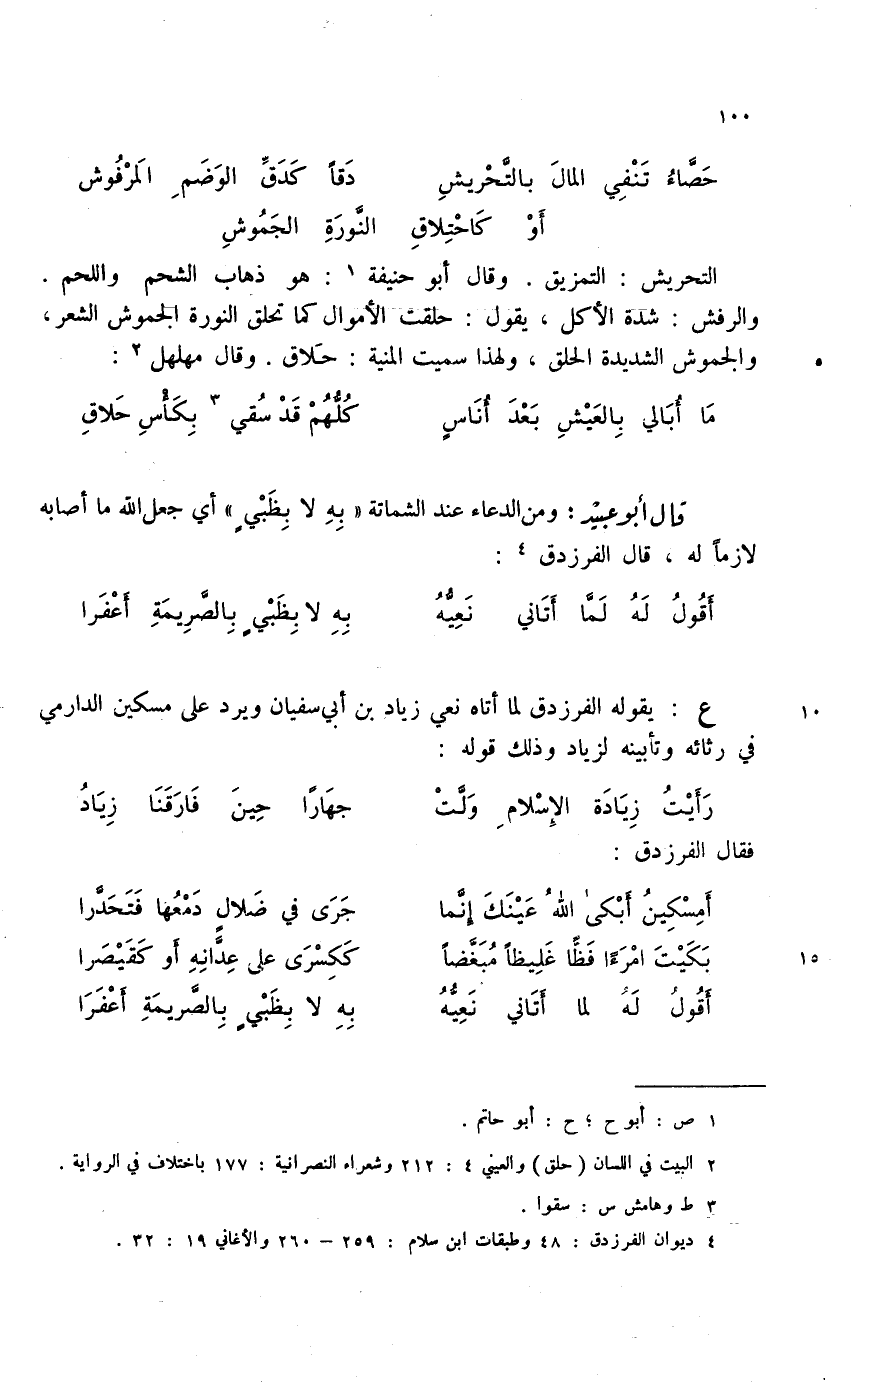 ١٠٠
حَصَّاءُ تَنْفِي المَالَ بالتَّحْرِيشِ دَقاً كَدَقِّ الوَضَمِ المَرْفُوش
أَوْ كَاحْتِلاقِ النُّورَةِ الجَمُوشِ
التحريش : التمزيق . وقال أبو حنيفة ١ : هو ذهاب الشحم واللحم .
والرفش : شدة الأكل ، يقول : حلقت الأموال كما تحلق النورة الجموش الشعر ،
٥ والجموش الشديدة الحلق ، ولهذا سميت المنية : حَلاق . وقال مهلهل ٢ :
مَا أُبَالي بِالعَيْشِ بَعْدَ أُنَاسٍ كُلُّهُمْ قَدْ سُقي ٣ بِكَأْسِ حَلاقِ
قال أبو عبيد : ومن الدعاء عند الشماتة « بِهِ لا بِظَبْيٍ » أي جعل الله ما أصابه
لازماً له ، قال الفرزدق ٤ :
أَقُولُ لَهُ لَمَّا أَتَاني نَعِيُّهُ بِهِ لا بِظَبْيٍ بِالصَّرِيمَةِ أَعْفَرا
١٠ ع : يقوله الفرزدق لما أتاه نعي زياد بن أبي سفيان ويرد على مسكين الدارمي
في رثائه وتأبينه لزياد وذلك قوله :
رَأَيْتُ زِيَادَة الإِسْلامِ وَلَّتْ جهَارًا حِينَ فَارَقَنَا زِيَادُ
فقال الفرزدق :
أَمِسْكِينُ أَبْكىٰ اللهُ عَيْنَكَ إِنَّما جَرَى في ضَلالٍ دَمْعُها فَتَحَدَّرا
١٥ بَكَيْتَ امْرَءًا فَظًّا غَلِيظاً مُبَغَّضاً كَكِسْرَى على عِدَّانِهِ أو كَقَيْصَرا
أَقُولُ لَهُ لما أَتَاني نَعِيُّهُ بِهِ لا بِظَبْيٍ بِالصَّريمَةِ أَعْفَرَا
١ ص : أبو ح ؛ ح : أبو حاتم .
٢ البيت في اللسان ( حلق ) والعيني ٤ : ٢١٢ وشعراء النصرانية : ١٧٧ باختلاف في الرواية .
٣ ط وهامش س : سقوا .
٤ ديوان الفرزدق : ٤٨ وطبقات ابن سلام : ٢٥٩ – ٢٦٠ والأغاني ١٩ : ٣٢ .